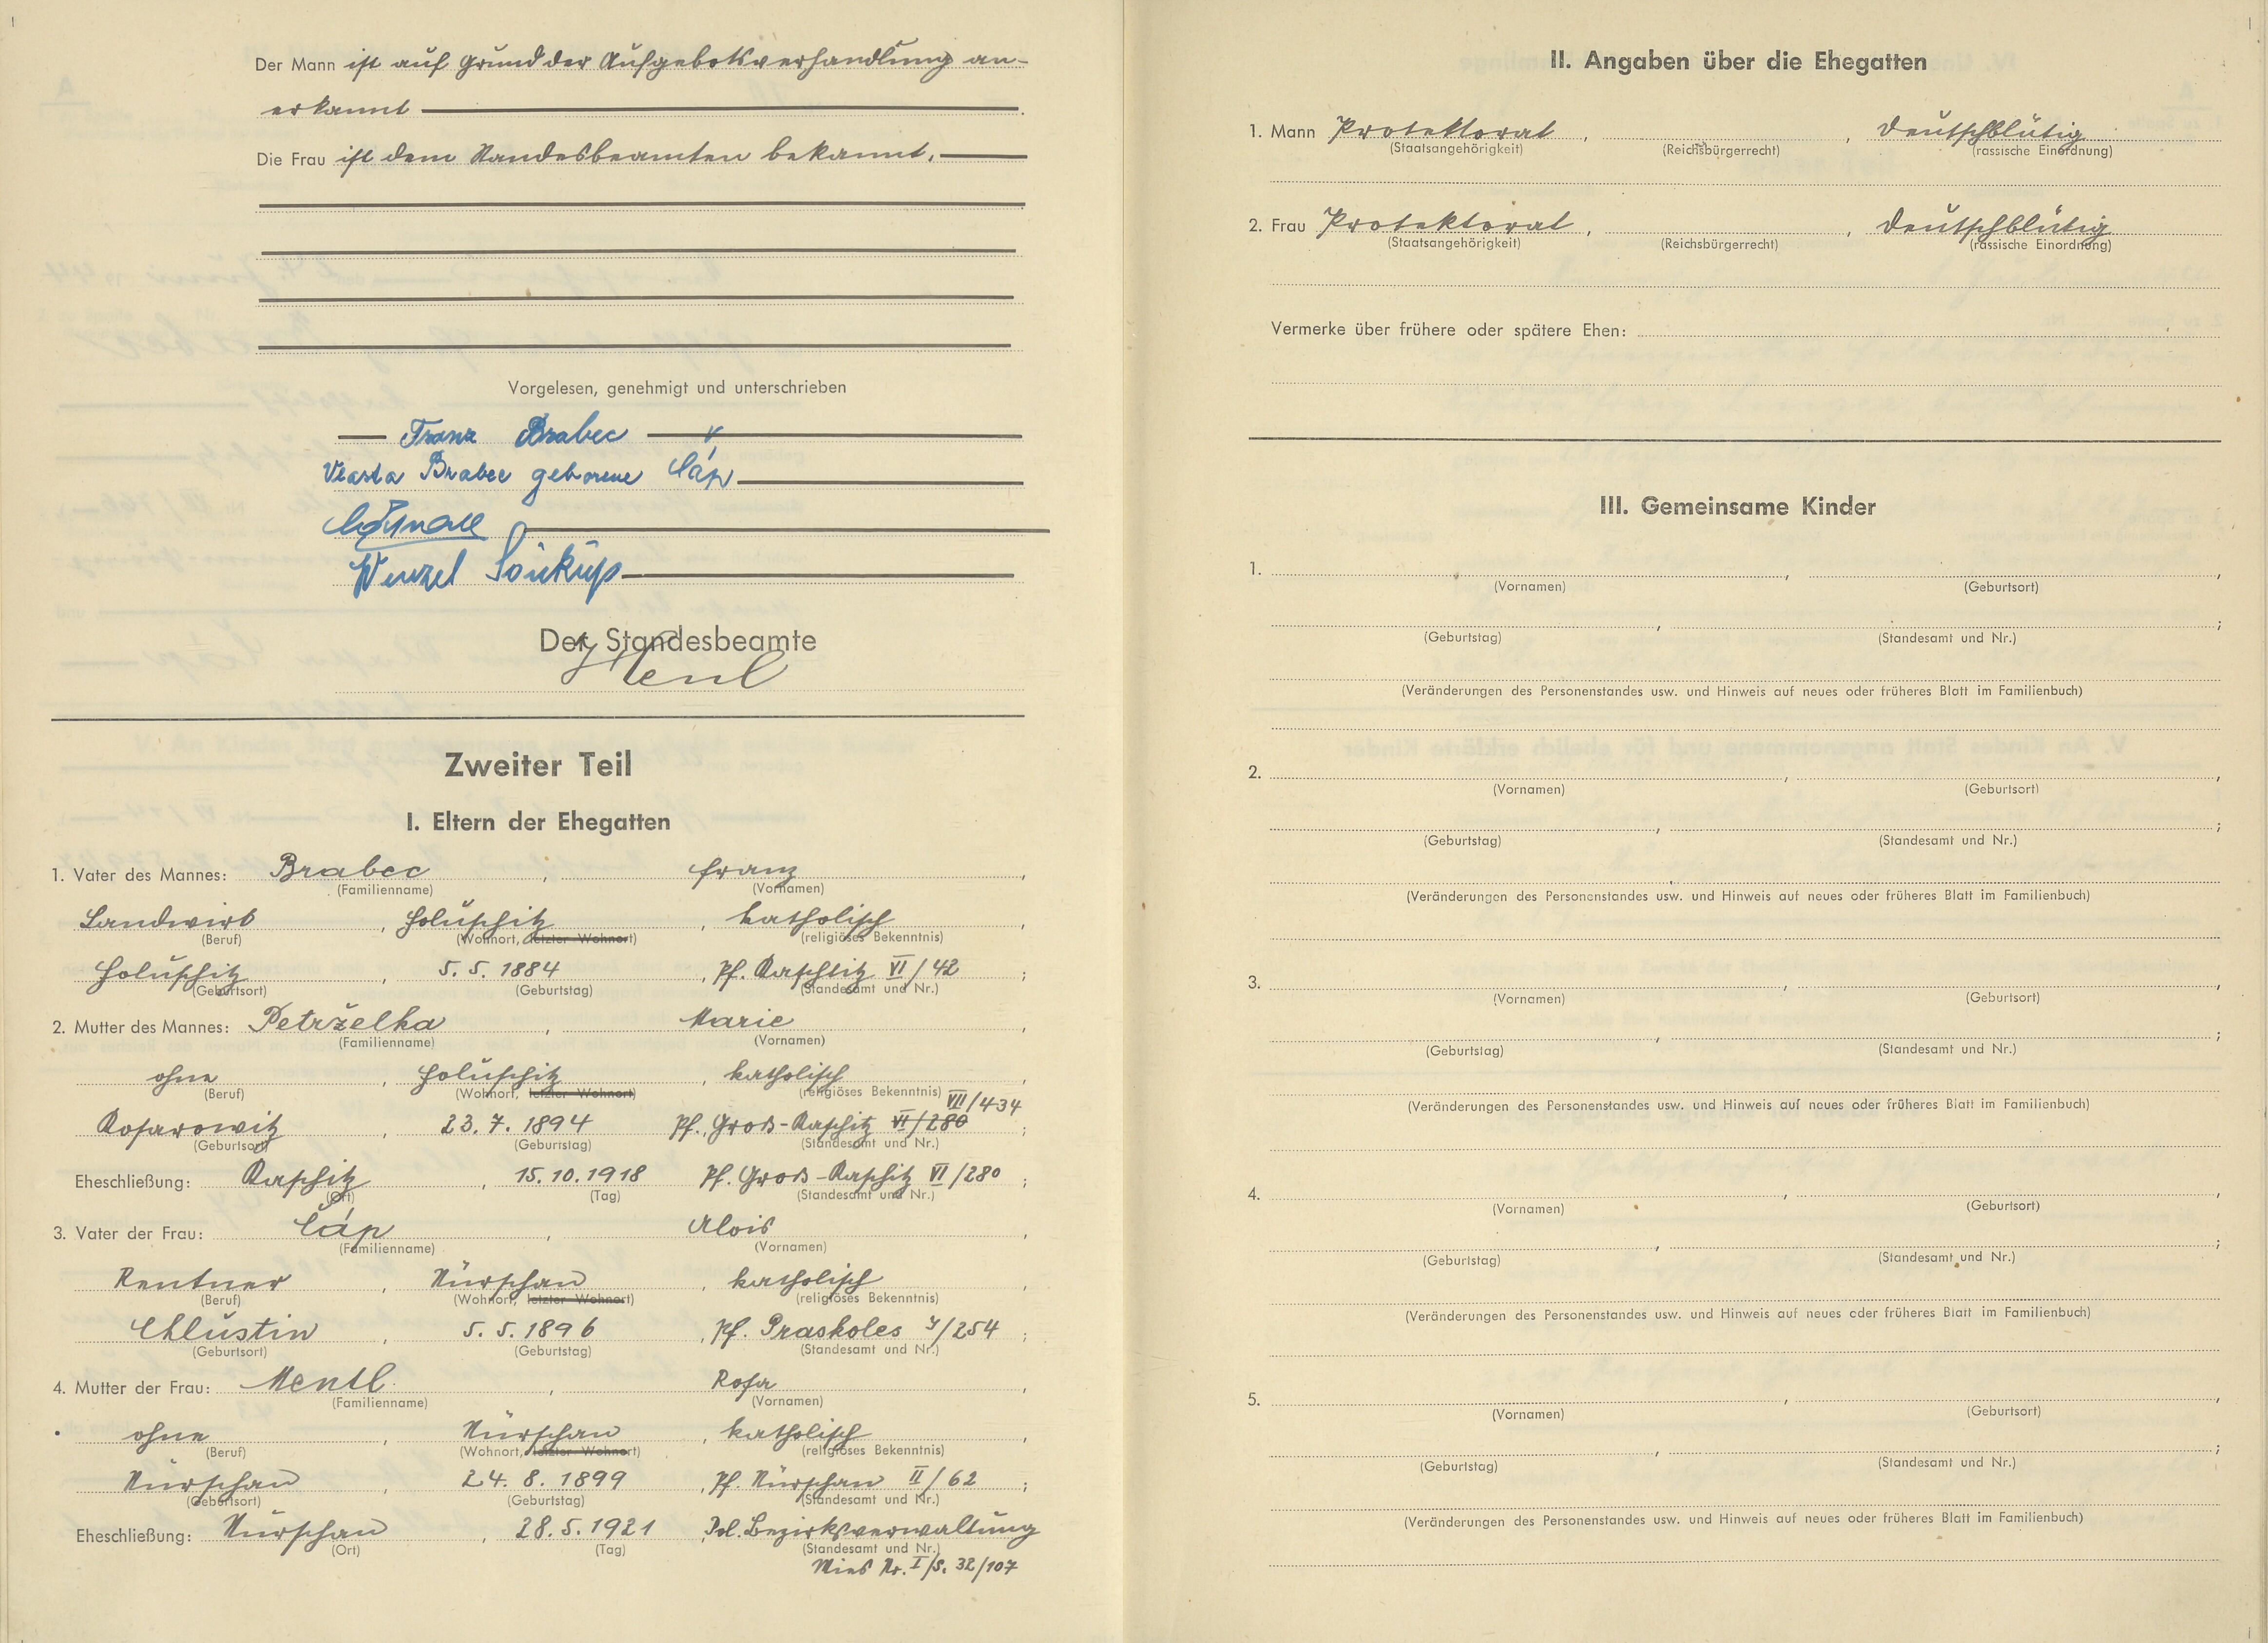 Der Mann ist auf Grund der Aufgebotsverhandlung an-
erkannt
Die Frau ist dem Standesbeamten bekannt.
Vorgelesen, genehmigt und unterschrieben
Franz Brabec
Vlasta Brabec geborene Čáp
Wenzel Soukup
Der Standesbeamte
Zweiter Teil
I. Eltern der Ehegatten
1. Vater des Mannes: Brabec , Franz ,
(Familienname) (Vornamen)
Landwirt , Holuschitz , katholisch ,
(Beruf) (Wohnort, letzter Wohnort) (religiöses Bekenntnis)
Holuschitz , 5. 5. 1884 , Pf. Raschtitz VI/42 ;
(Geburtsort) (Geburtstag) (Standesamt und Nr.)
2. Mutter des Mannes: Petrželka , Marie ,
(Familienname) (Vornamen)
ohne , Holuschitz , katholisch ,
(Beruf) (Wohnort, letzter Wohnort) (religiöses Bekenntnis)
VII/434
Kosarowitz , 23. 7. 1894 Pf. Groß-Raschitz VI/280 ;
(Geburtsort) (Geburtstag) (Standesamt und Nr.)
Eheschließung: Raschitz , 15. 10. 1918 Pf. Groß-Raschitz VI/280 ;
(Ort) (Tag) (Standesamt und Nr.)
3. Vater der Frau: Čáp , Alois ,
(Familienname) (Vornamen)
Rentner , Nürschan , katholisch ,
(Beruf) (Wohnort, letzter Wohnort) (religiöses Bekenntnis)
Chlustin , 5. 5. 1896 , Pf. Praskoles /254 ;
(Geburtsort) (Geburtstag) (Standesamt und Nr.)
4. Mutter der Frau: Mentl , Rosa ,
(Familienname) (Vornamen)
ohne , Nürschan , katholisch ,
(Beruf) (Wohnort, letzter Wohnort) (religiöses Bekenntnis)
Nürschan , 24. 8. 1899 , Pf. Nürschan II/62 ;
(Geburtsort) (Geburtstag) (Standesamt und Nr.)
Eheschließung: Nürschan , 28. 5. 1921 , Pol. Bezirksverwaltung
(Ort) (Tag) (Standesamt und Nr.)
Mies Nr. I/S. 32/107
II. Angaben über die Ehegatten
1. Mann Protektorat , , deutschblütig
(Staatsangehörigkeit) (Reichsbürgerrecht) (rassische Einordnung)
2. Frau Protektorat , , deutschblütig
(Staatsangehörigkeit) (Reichsbürgerrecht) (rassische Einordnung)
Vermerke über frühere oder spätere Ehen:
III. Gemeinsame Kinder
1. , ,
(Vornamen) (Geburtsort)
, ;
(Geburtstag) (Standesamt und Nr.)
(Veränderungen des Personenstandes usw. und Hinweis auf neues oder früheres Blatt im Familienbuch)
2. , ,
(Vornamen) (Geburtsort)
, ;
(Geburtstag) (Standesamt und Nr.)
(Veränderungen des Personenstandes usw. und Hinweis auf neues oder früheres Blatt im Familienbuch)
3. , ,
(Vornamen) (Geburtsort)
, ;
(Geburtstag) (Standesamt und Nr.)
(Veränderungen des Personenstandes usw. und Hinweis auf neues oder früheres Blatt im Familienbuch)
4. , ,
(Vornamen) (Geburtsort)
, ;
(Geburtstag) (Standesamt und Nr.)
(Veränderungen des Personenstandes usw. und Hinweis auf neues oder früheres Blatt im Familienbuch)
5. , ,
(Vornamen) (Geburtsort)
, ;
(Geburtstag) (Standesamt und Nr.)
(Veränderungen des Personenstandes usw. und Hinweis auf neues oder früheres Blatt im Familienbuch)